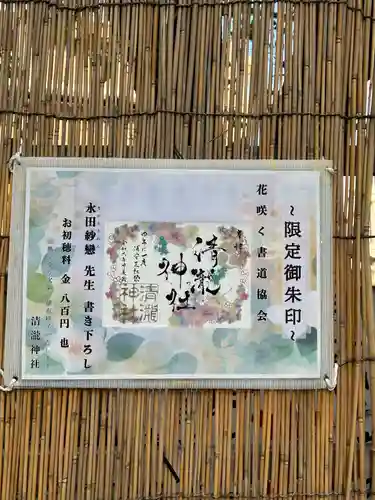 ~限定御朱印~
花咲く書道協会
清瀧
神社
四年に一度
清瀧
神社
永田紗戀 先生 書き下ろし
お初穂料 金 八百円 也
清瀧神社